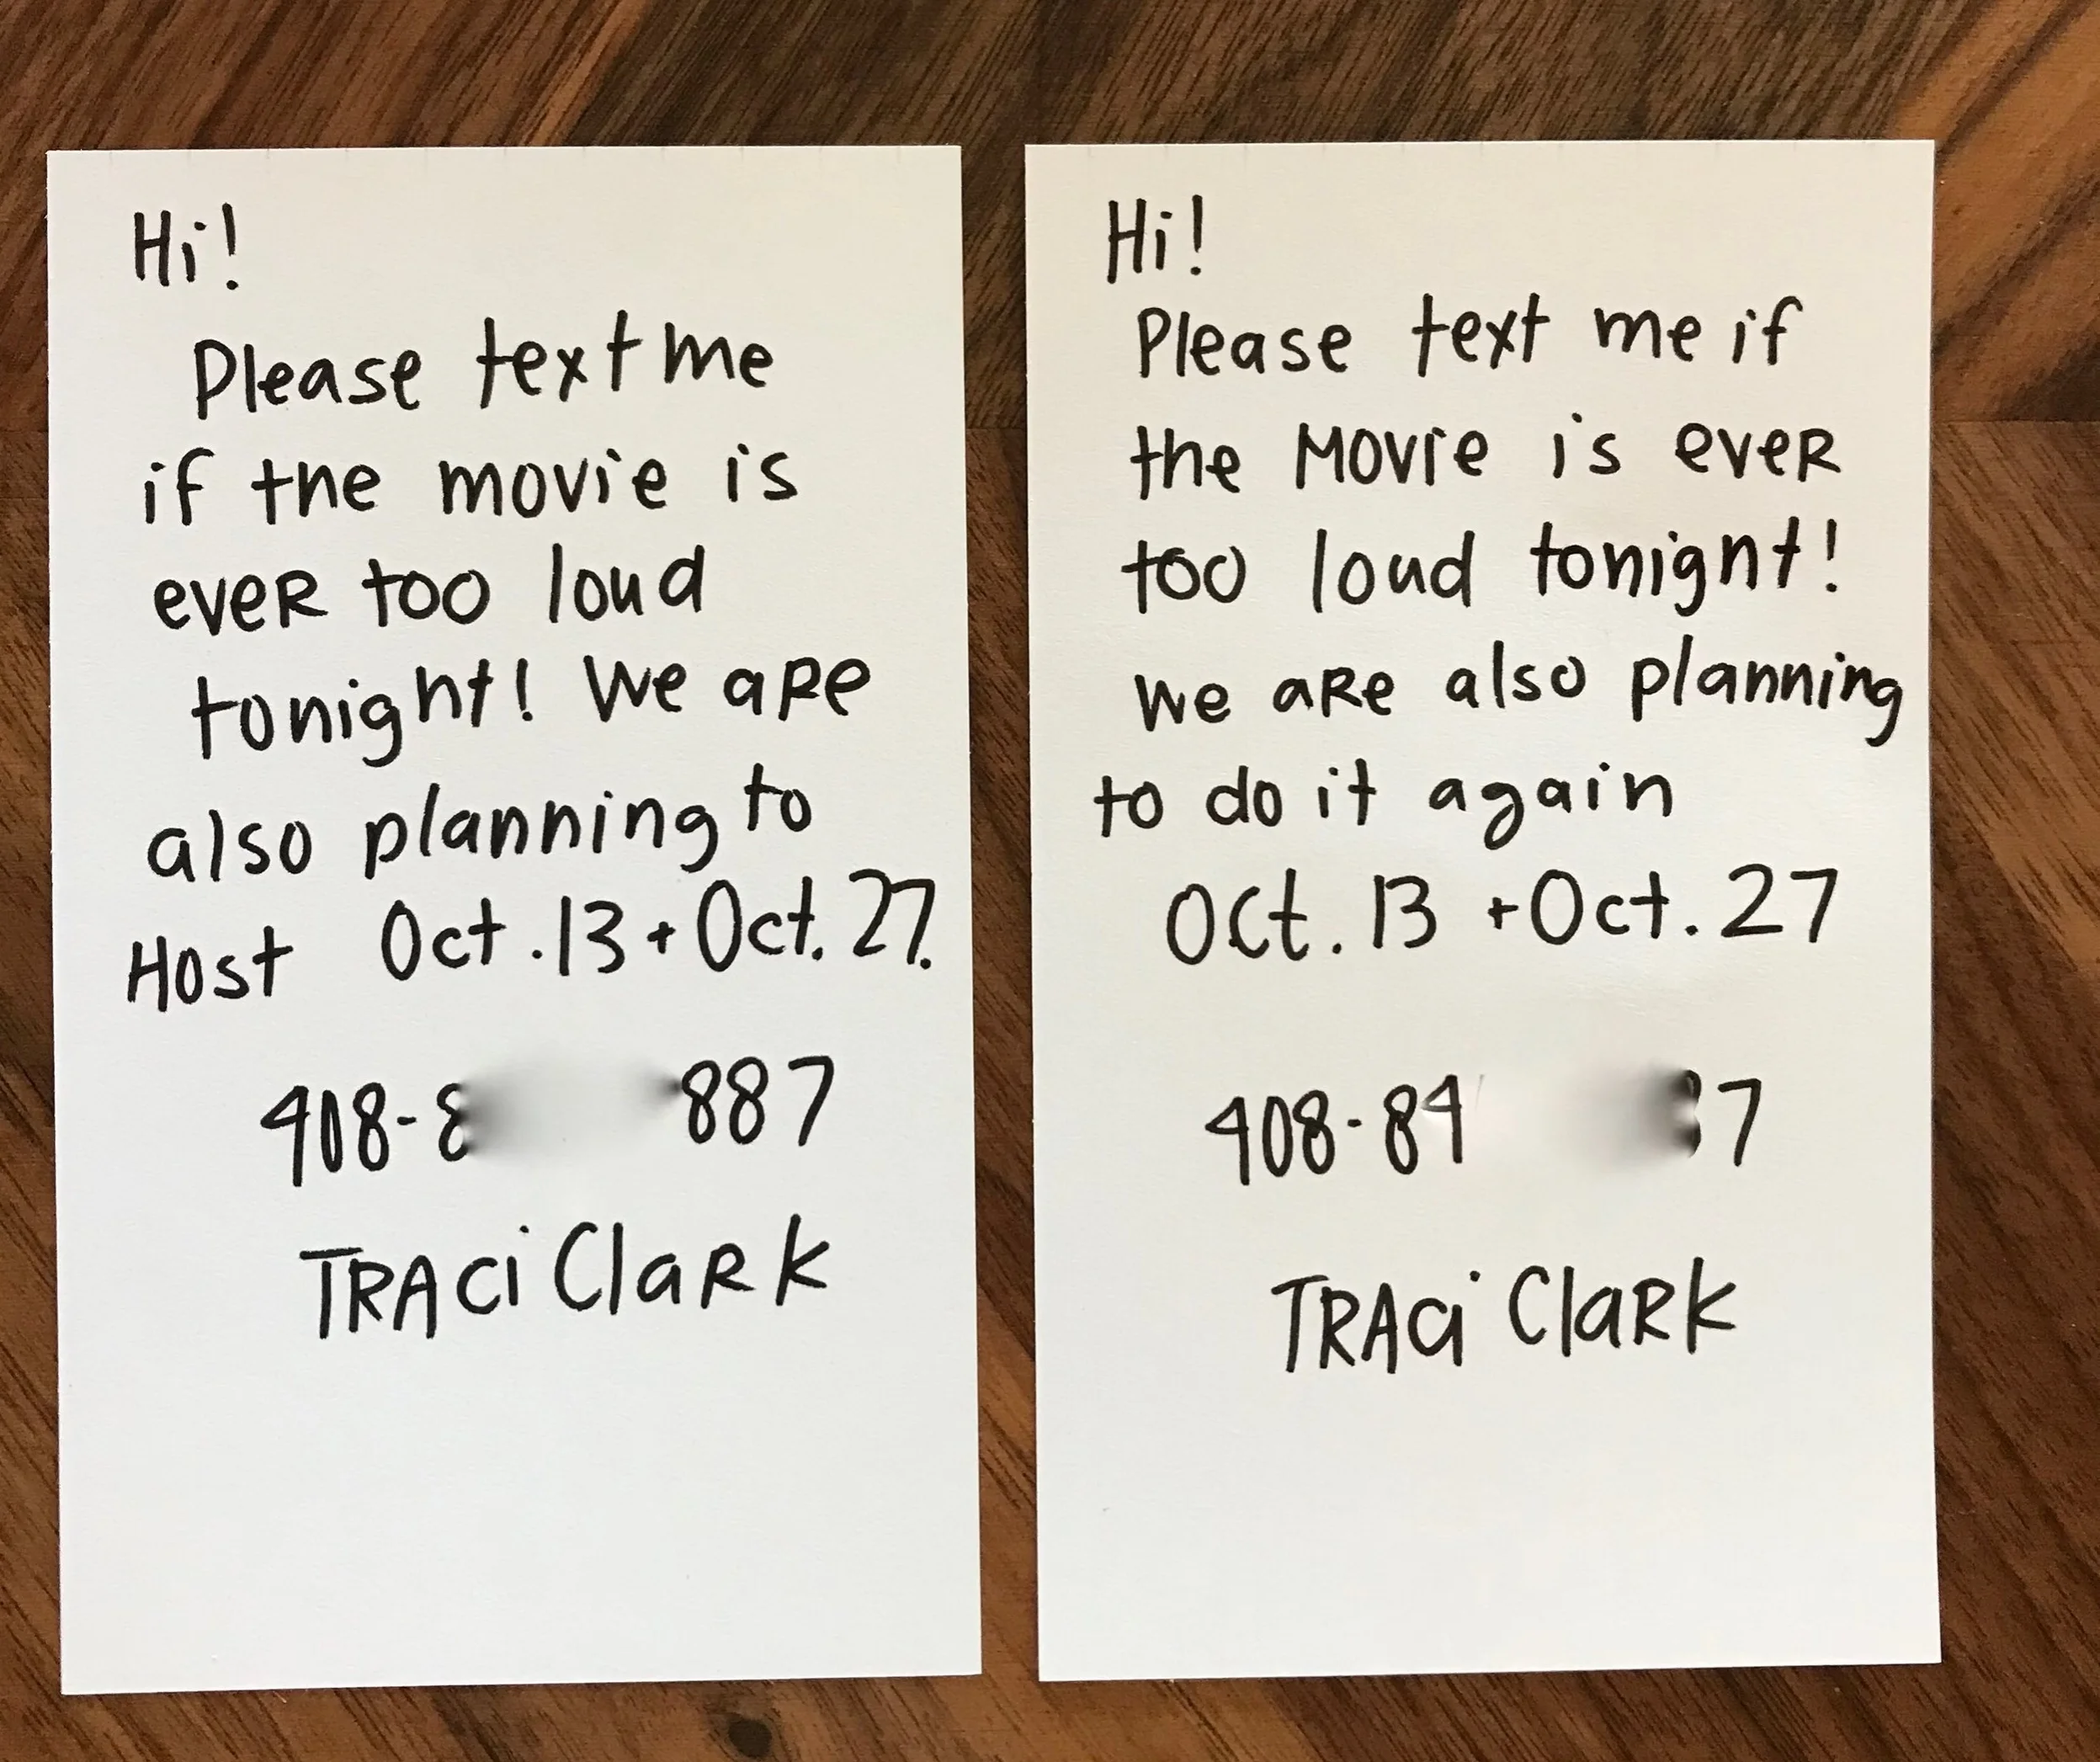 Hi!
Please text me
if the movie is
ever too loud
tonight! We are
also planning to
Host Oct. 13 + Oct. 27.
408-8 887
TRACi ClaRk
Hi!
Please text me if
the Movie is ever
too loud tonight!
We are also planning
to do it again
Oct. 13 + Oct. 27
408-84 7
TRACi ClaRk